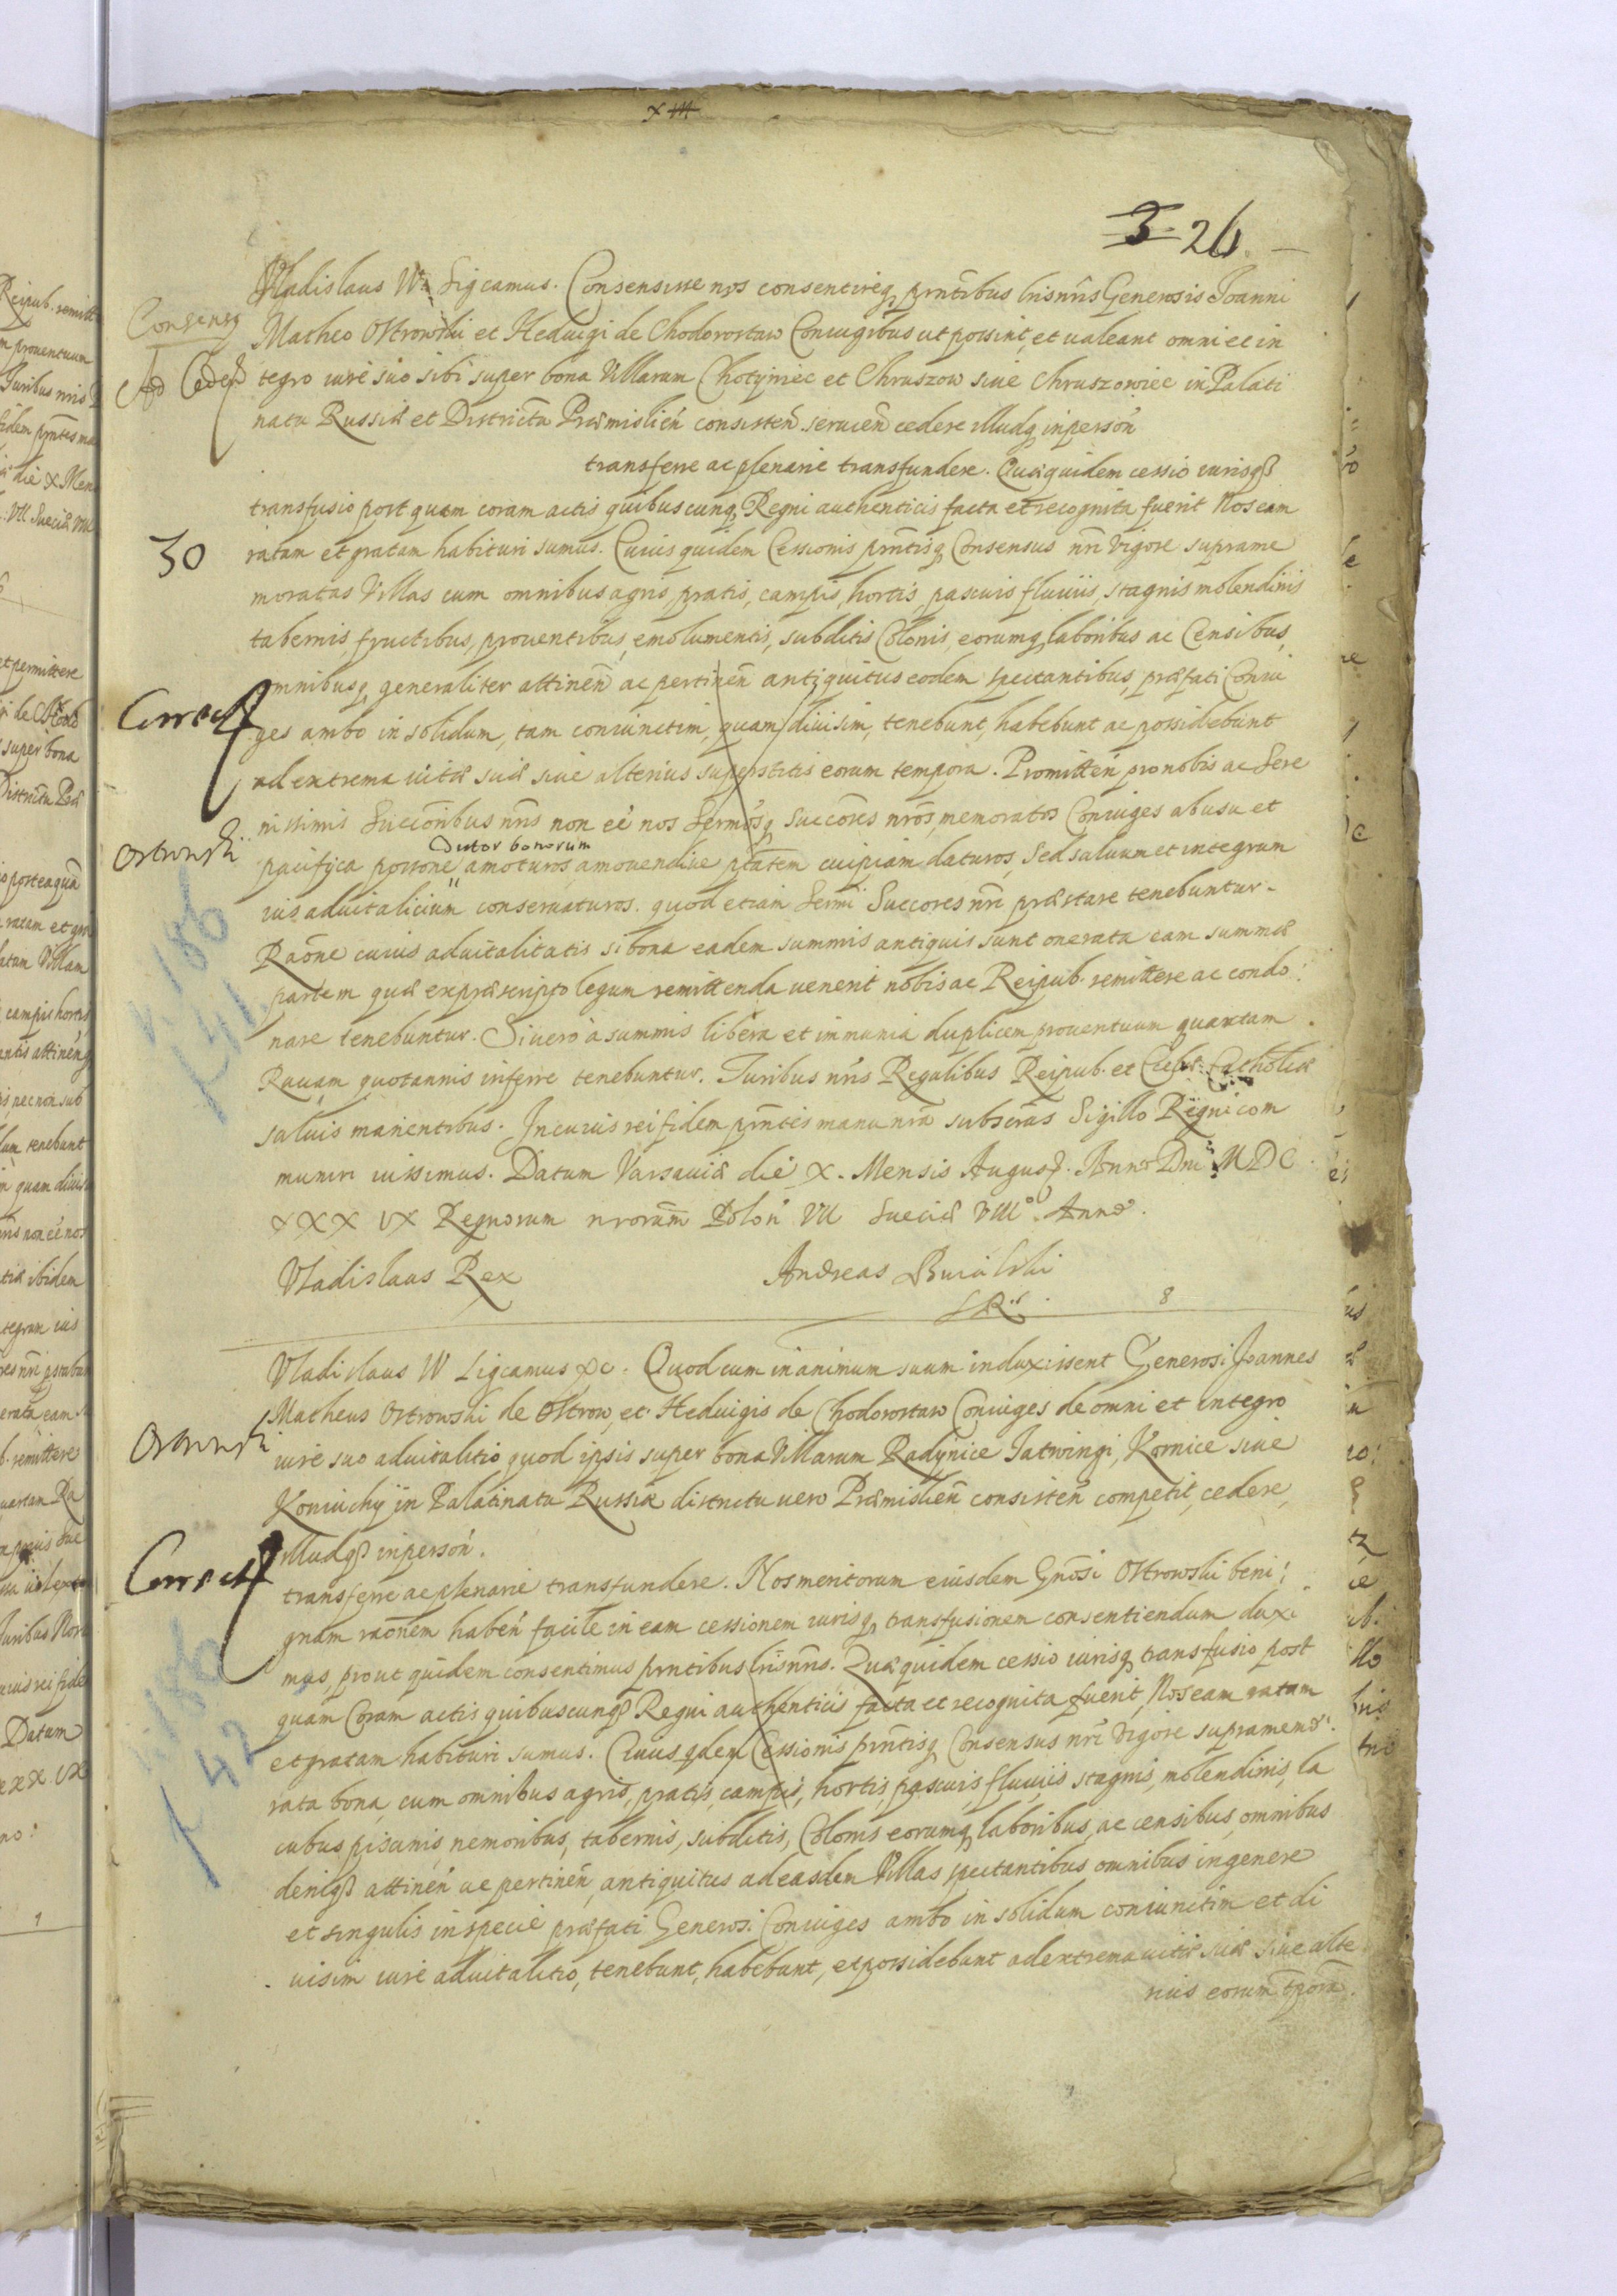 XIII
3. 26.
Vladislaus IV. Sigcamus. Consensisse nos consentireq prntibus lrisnris Generosis Joanni
Consensq
Matheo Ostrowski et Heduigi de Chodorostaw Coniugibus ut possint, et ualeant omni et in
Ad Cedeq
tegro iure suo sibi super bona Villarum Chotyniec et Chruszow siue Chruszowiec in Palati
natu Russiæ et Districtu Præmislien consisten seruien cedere illudq in person
transferre ac plenarie transfundere. Quæ quidem cessio iurisq
transfusio post quam coram actis quibuscunq Regni authenticis facta et recognita fuerit Nos eam
30
ratam et gratam habituri sumus. Cuius quidem Cessionis prntisq Consensus nri Vigore suprame
moratas Villas cum omnibus agris, pratis, campis, hortis, pascuis, fluuiis, stagnis molendinis
tabernis, fructibus, prouentibus, emolumentis, subditis Colonis, eorumq laboribus ac Censibus,
omnibusq generaliter attinen ac pertinen antiquitus eodem spectantibus, præfati Coniu
Correct
ges ambo in solidum, tam coniunctim, quam diuisim, tenebunt, habebunt ac possidebunt
ad extrema uitæ suæ siue alterius superstitis eorum tempora. Promitten pro nobis ac Sere
nissimis Succoribus nris non eè nos Sermosq Succores nros, memoratos Coniuges ab usu et
Ostrowski
Dictor bonorum
pacifica possone amoturos, amouendiue ptatem cuipiam daturos, sed saluum et integrum
ius aduitalicium conseruaturos. quod etiam Sermi Succores nri præstare tenebuntur.
186
Raone cuius aduitalitatis si bona eadem summis antiquis sunt onerata eam summæ
41
partem quæ ex præscripto legum remittenda uenerit nobis ac Reipub. remittere ac condo
nare tenebuntur. Si uero à summis libera et immunia duplicem prouentuum quartam
Rauam quotannis inferre tenebuntur. Iuribus nris Regalibus Reipub. et Catholicæ
saluis manentibus. In cuius rei fidem prntes manu nra subscras Sigillo Regni com
muniri iussimus. Datum Varsauiæ die X. Mensis August. Anno Dni MDC
XXX IX Regnorum nrorum Polon VII Sueciæ VIII Anno.
Vladislaus Rex Andreas
8
Vladislaus IV Ligcamus &c. Quod cum in animum suum induxissent Generosi Joannes
Matheus Ostrowski de Ostrow, et Heduigis de Chodorostaw Coniuges de omni et integro
Ostrowski
iure suo aduitalitio quod ipsis super bona Villarum Radynice Jatwingi, Kornice siue
Koniuchy in Palatinatu Russiæ districtu uero Præmislien consisten competit, cedere,
illudq in person.
Correct
transferre ac plenarie transfundere. Nos meritorum eiusdem Gnosi Ostrowski beni
gnam raonem haben facile in eam cessionem iurisq transfusionem consentiendum duxi
186
mus, prout quidem consentimus prntibus lrisnris. Quæ quidem cessio iurisq transfusio post
quam Coram actis quibuscunq Regni authenticis facta et recognita fuerit, Nos eam ratam
42
et gratam habituri sumus. Cuius qdem Cessionis prntisq Consensus nri Vigore supramemo
rata bona, cum omnibus agris, pratis, campis, hortis, pascuis, fluuiis, stagnis, molendinis, la
cubus, piscinis, nemoribus, tabernis, subditis, Colonis eorumq laboribus, ac censibus, omnibus
deniq attinen ac pertinen, antiquitus ad easdem Villas spectantibus omnibus in genere
et singulis in specie præfati Generosi Coniuges ambo in solidum coniunctim et di
uisim iure aduitalitio, tenebunt, habebunt, et possidebunt ad extrema uitæ suæ siue alte
rius eorum tpora.